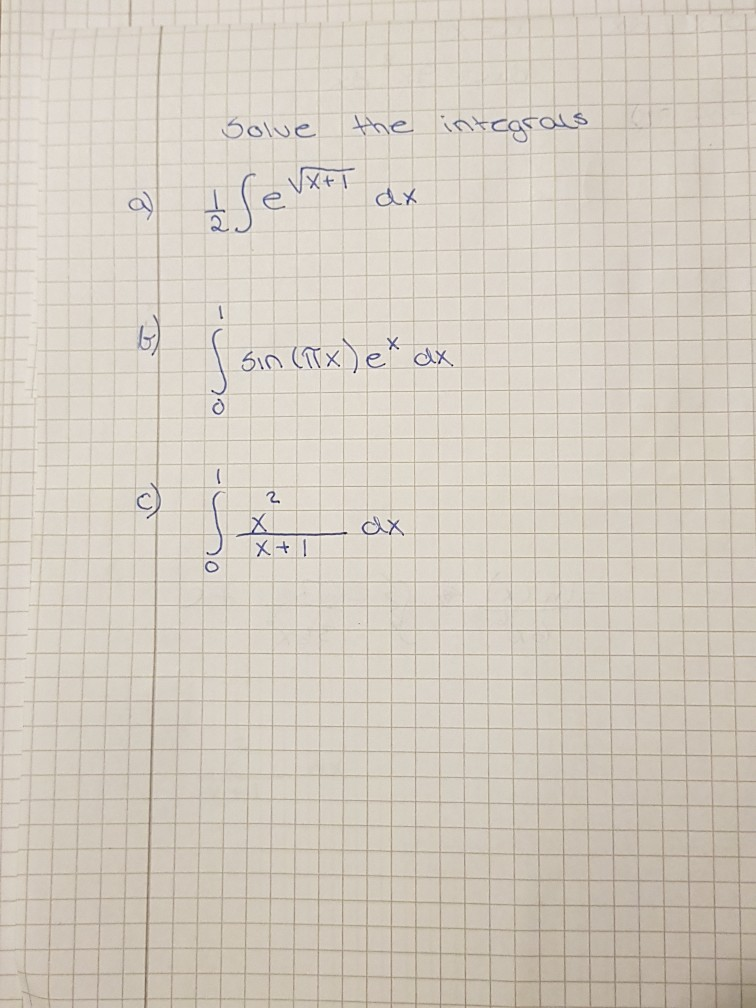 Solve the integrals
a) 1/2 ∫ e^√(x+1) dx
b) ∫₀¹ sin(πx) e^x dx
c) ∫₀¹ x²/(x+1) dx